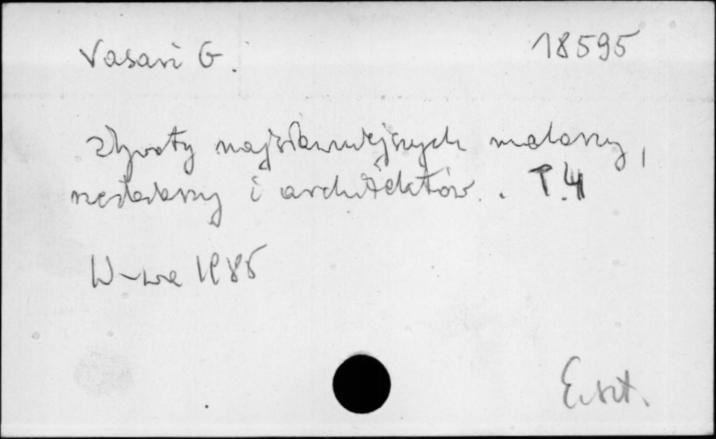 Vasari G.
18595
Żywoty najsławniejszych malarzy,
rzeźbiarzy i architektów. T.4
W-wa 1985